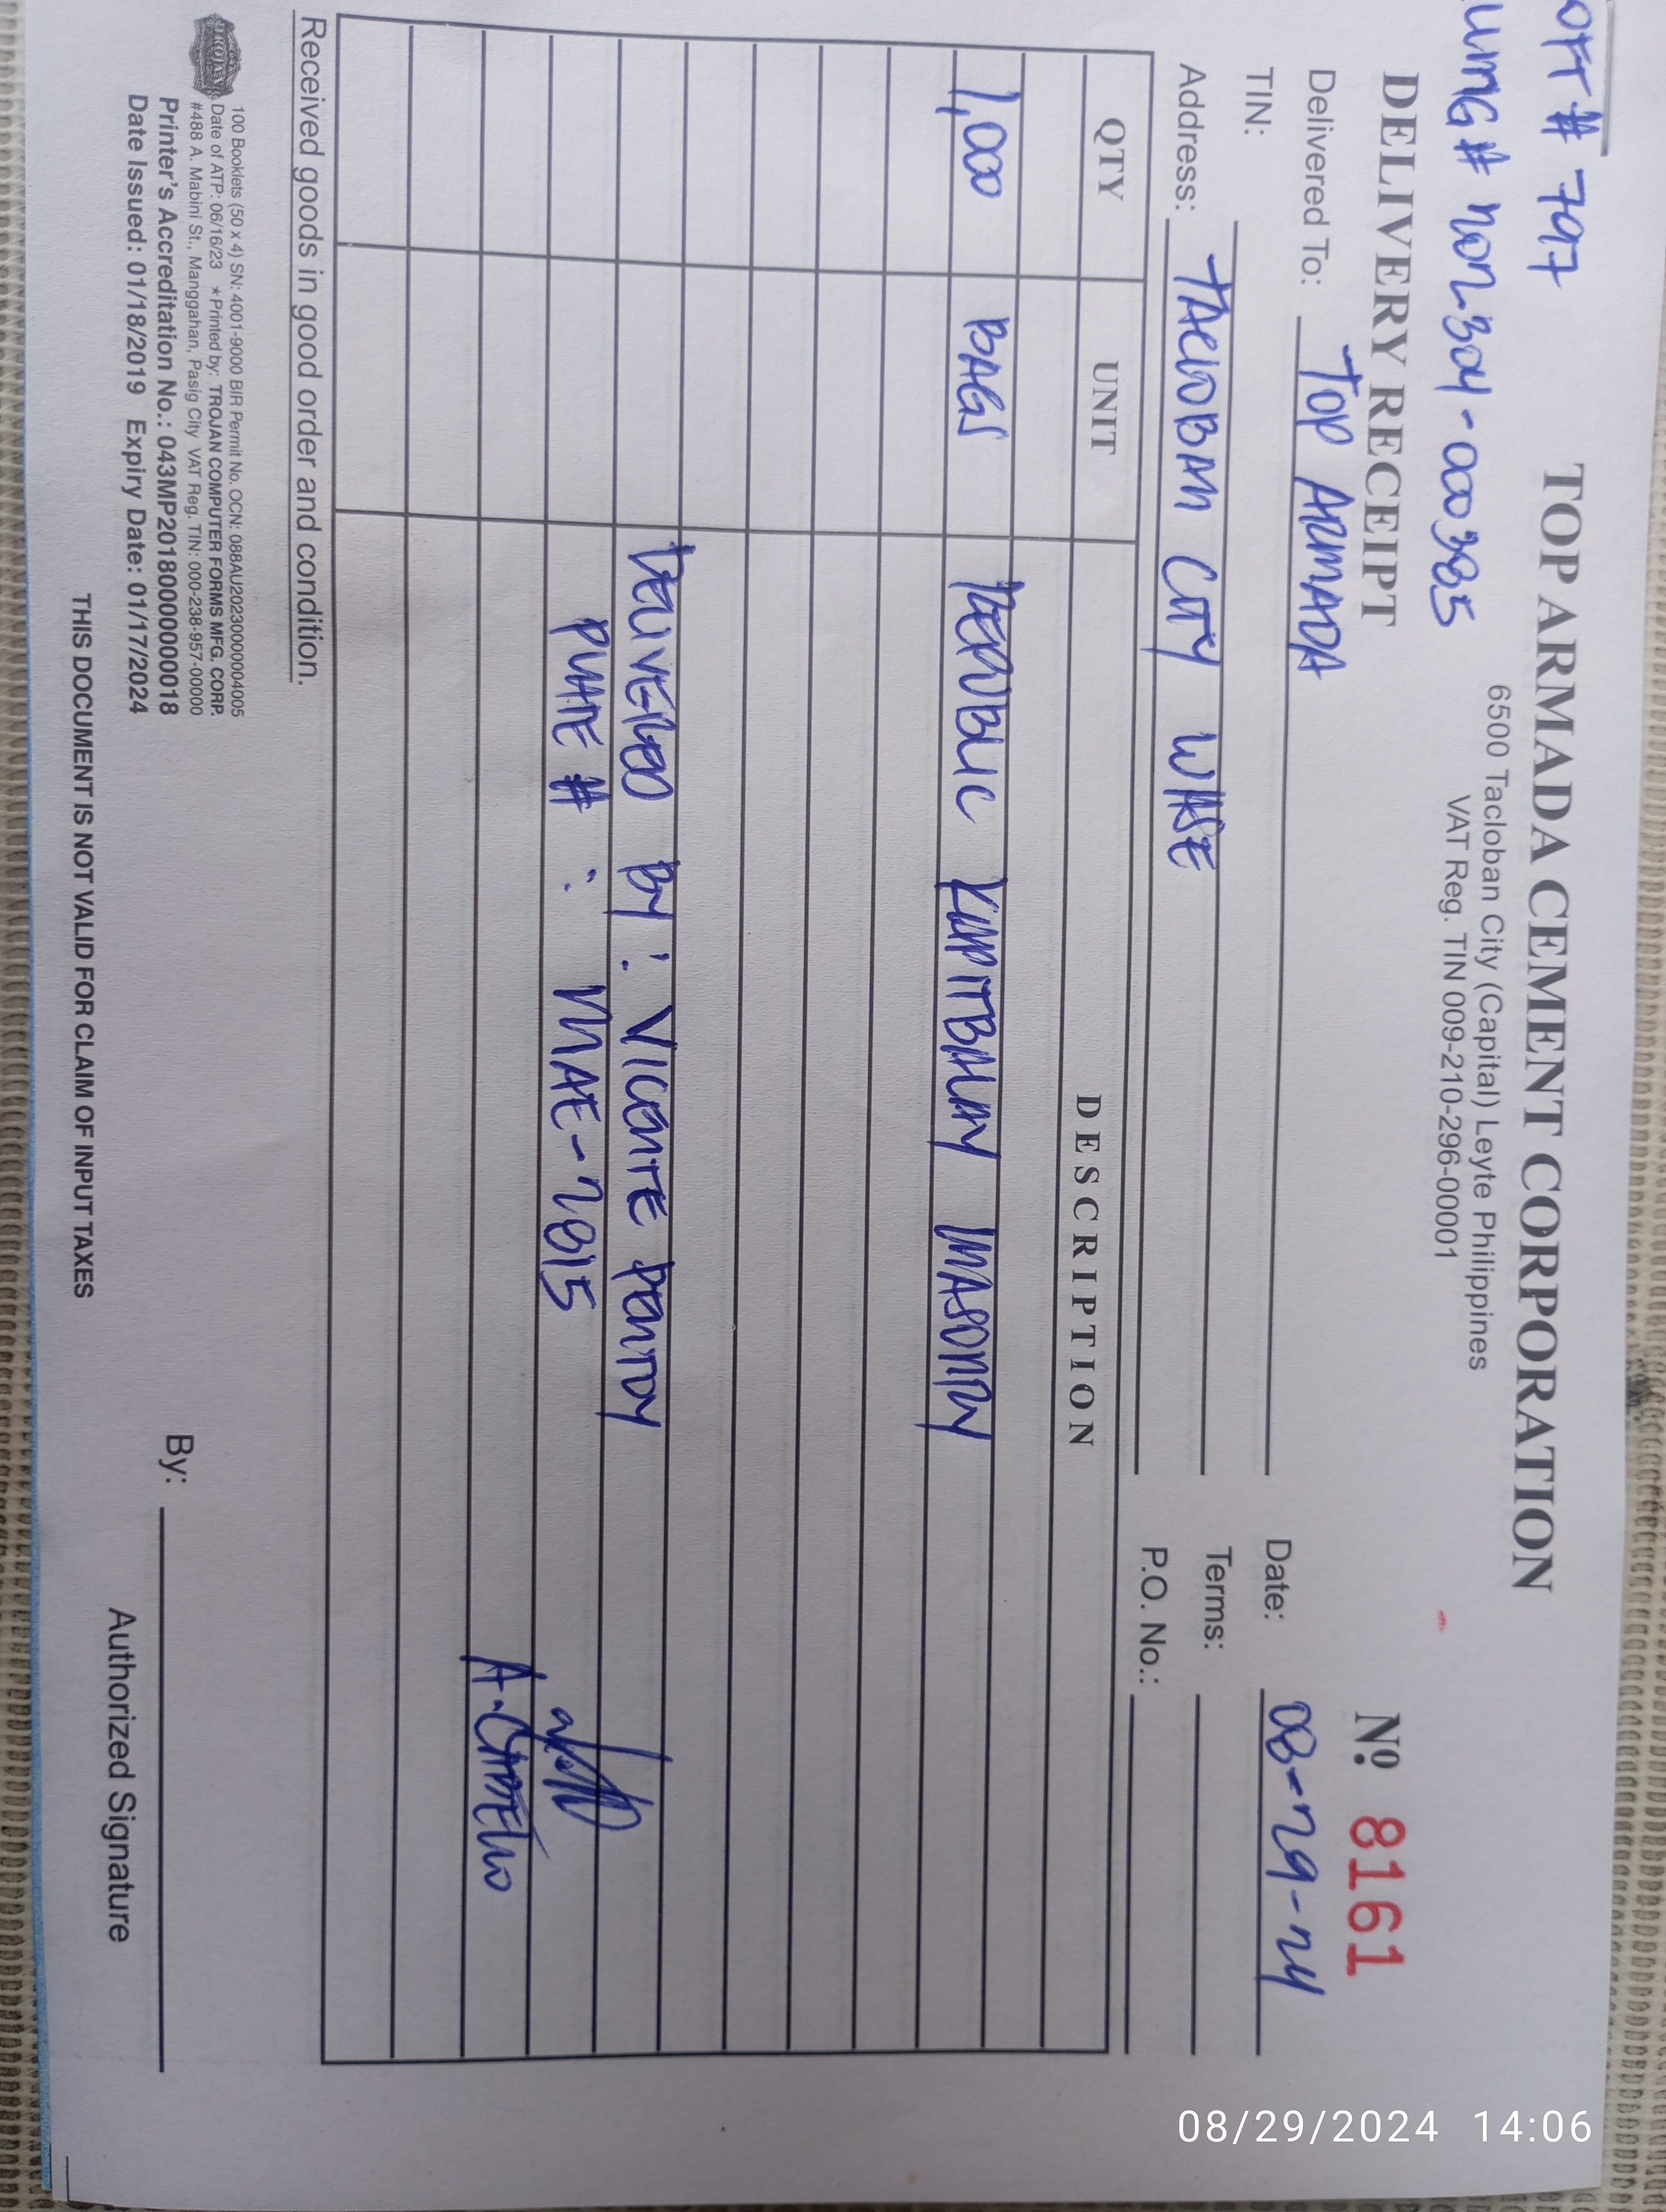 OFT # 797
TOP ARMADA CEMENT CORPORATION
6500 Tacloban City (Capital) Leyte Philippines
VAT Reg. TIN 009-210-296-00001
# 2304-000385
DELIVERY RECEIPT
Nº 8161
Delivered To: TOP ARMADA
Date: 08-29-24
TIN:
Terms:
Address: TACLOBAN CITY WHSE
P.O. No.:
QTY UNIT DESCRIPTION
1,000 BAGS REPUBLIC KAPITBAHAY MASONRY
DELIVERED BY: VICENTE
PLATE #: MAE-2815
A.
Received goods in good order and condition.
TROJAN
100 Booklets (50 x 4) SN: 4001-9000 BIR Permit No. OCN: 088AU20230000004005
Date of ATP: 06/16/23 ★Printed by: TROJAN COMPUTER FORMS MFG. CORP.
#488 A. Mabini St., Manggahan, Pasig City VAT Reg. TIN: 000-238-957-00000
Printer's Accreditation No.: 043MP20180000000018
Date Issued: 01/18/2019 Expiry Date: 01/17/2024
By:
Authorized Signature
THIS DOCUMENT IS NOT VALID FOR CLAIM OF INPUT TAXES
08/29/2024 14:06